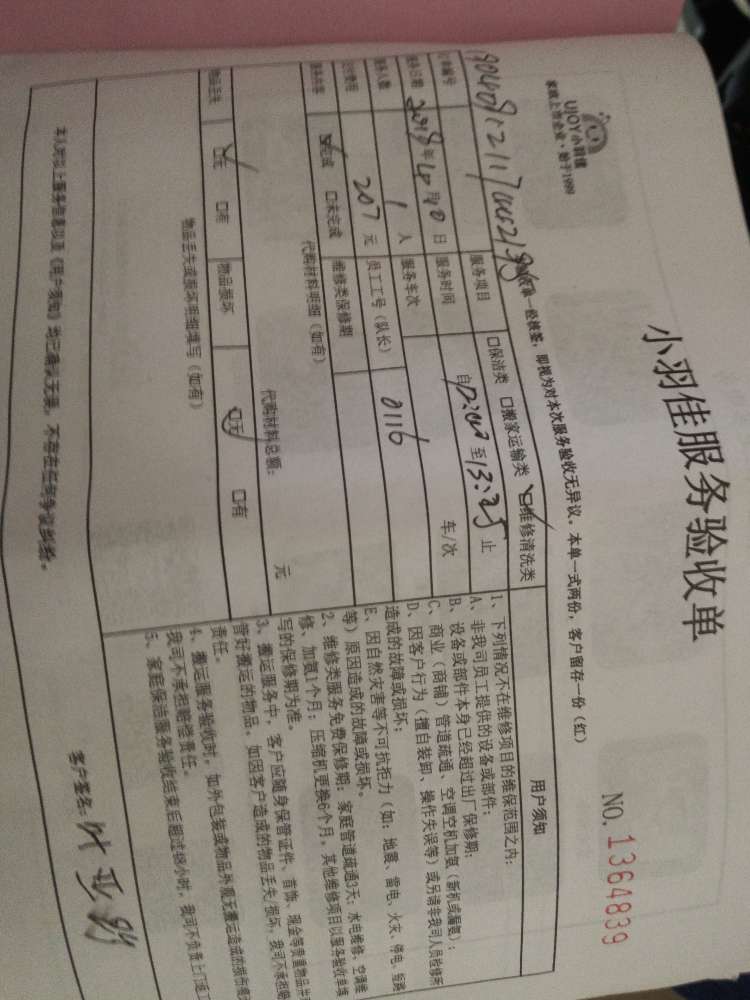 小羽佳服务验收单
UJOY小羽佳
家政上市企业·始于1999
NO.1364839
一经核签，即视为对本次服务验收无异议。本单一式两份，客户留存一份（红）
订单编号
服务项目 □保洁类 □搬家运输类 ☑维修清洗类
服务日期 2019年 月10日 服务时间 自 至13:25止
服务人数 1人 服务车次 车/次
支付费用 207元 员工工号（队长） 0116
服务内容 ☑完成 □未完成 维修类保修期
代购材料明细（如有）
代购材料总额： 元
物品丢失 ☑无 □有 物品损坏 ☑无 □有
物品丢失或损坏明细填写（如有）
用户须知
1、下列情况不在维修项目的维保范围之内：
A、非我司员工提供的设备或部件；
B、设备或部件本身已经超过出厂保修期；
C、商业（商铺）管道疏通、空调空机加氨（新机或漏氨）；
D、因客户行为（擅自装卸、操作失误等）或另请非我司人员检修所
造成的故障或损坏；
E、因自然灾害等不可抗拒力（如：地震、雷电、火灾、停电、短路
等）原因造成的故障或损坏。
2、维修类服务免费保修期：家庭管道疏通3天；水电维修、空调维
修、加氨1个月；压缩机更换6个月，其他维修项目以服务验收单填
写的保修期为准。
3、搬运服务中，客户应随身保管证件、首饰、现金等贵重物品并
善好搬运的物品，如因客户造成的物品丢失/损坏，我司不承担赔
责任。
4、搬运服务验收时，如外包装或物品外观无搬运造成的损伤痕
我司不承担赔偿责任。
5、家庭保洁服务验收结束后超过 小时，我司不负责上门返工
本人对以上服务信息以及《用户须知》均已确认无误，不存在任何争议纠纷。
客户签名：叶